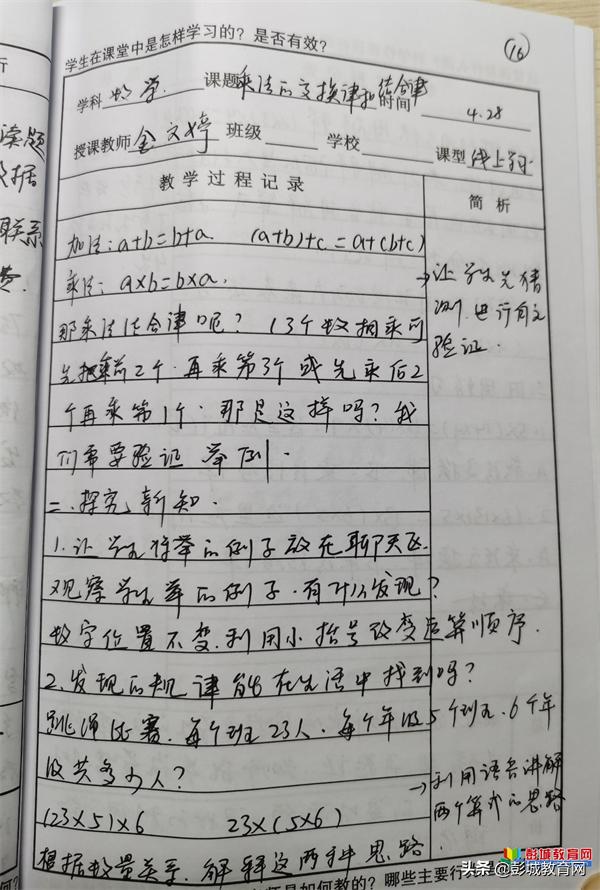 学生在课堂中是怎样学习的？是否有效？
16
学科 数学 课题 乘法的交换律和结合律 时间 4.28
授课教师 金文婷 班级 学校 课型 线上学习
教学过程记录
简析
加法：a+b=b+a. (a+b)+c=a+(b+c)
乘法：a×b=b×a.
那乘法结合律呢？（3个数相乘可
先把乘前2个.再乘第3个或先乘后2
个再乘第1个.那是这样吗？我
们需要验证 举例.
二.探究新知.
1.让学生将举的例子放在聊天区.
观察学生举的例子.有什么发现？
数字位置不变.利用小括号改变运算顺序.
2.发现的规律能在生活中找到吗？
跳绳比赛.每个班23人.每个年级5个班.6个年
级共多少人？
(23×5)×6 23×(5×6)
根据数量关系.解释这两种思路.
→让学生先猜
测.进行自主
验证.
→利用语言讲解
两个算式的思路
读题
数据
联系
费.
是如何教的？哪些主要行
头条@彭城教育网
彭城教育网